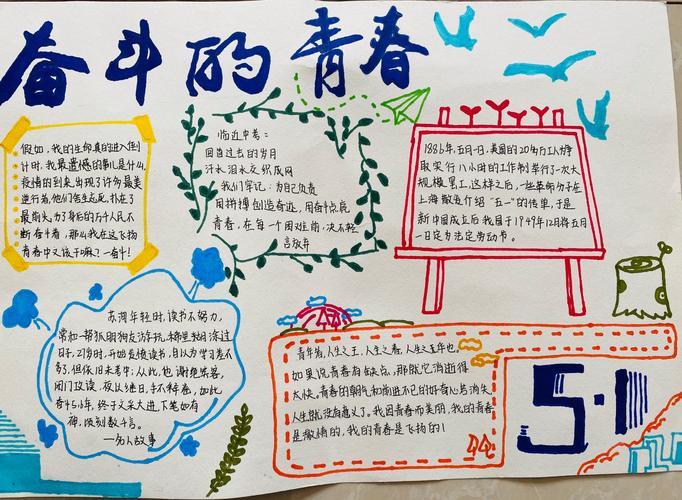 奋斗的青春
假如,我的生命真的进入倒
计时,我最遗憾的事儿是什么,
疫情的到来出现了许多最美
逆行者,他们舍生忘死,扑在了
最前头,为了身后的万千人民不
断奋斗着,那么我在这飞扬
青春中又该干嘛?一奋斗!
临近中考:
回首过去的岁月
汗水泪水交织成网
我们牢记:为自己负责
用拼搏创造奇迹,用奋斗点亮
青春,在每一个困难前,决不轻
言放弃
1886年,五月一日,美国的20多万工人为争
取实行八小时的工作制举行了一次大
规模罢工,这样之后,一些革命分子在
上海散发介绍“五一”的传单,于是
新中国成立后我国于1949年12月将五月
一日定为法定劳动节。
苏洵年轻时,读书不努力,
常和一帮狐朋狗友游玩,
日子,27岁时,开始发愤读书,自以为学习差不
多,但依旧未考中;从此,他谢绝宾客,
闭门攻读,夜以继日,手不释卷,如此
者5.6年,终于文采大进,下笔如有
神,顷刻数千言。
一名人故事
青年者,人生之王,人生之春,人生之华也。
如果说青春有缺点,那就它消逝得
太快。青春的朝气和前进不已的好奇心若消失,
人生就没有意义了。我因青春而美丽,我的青春
是激情的,我的青春是飞扬的!
5·1